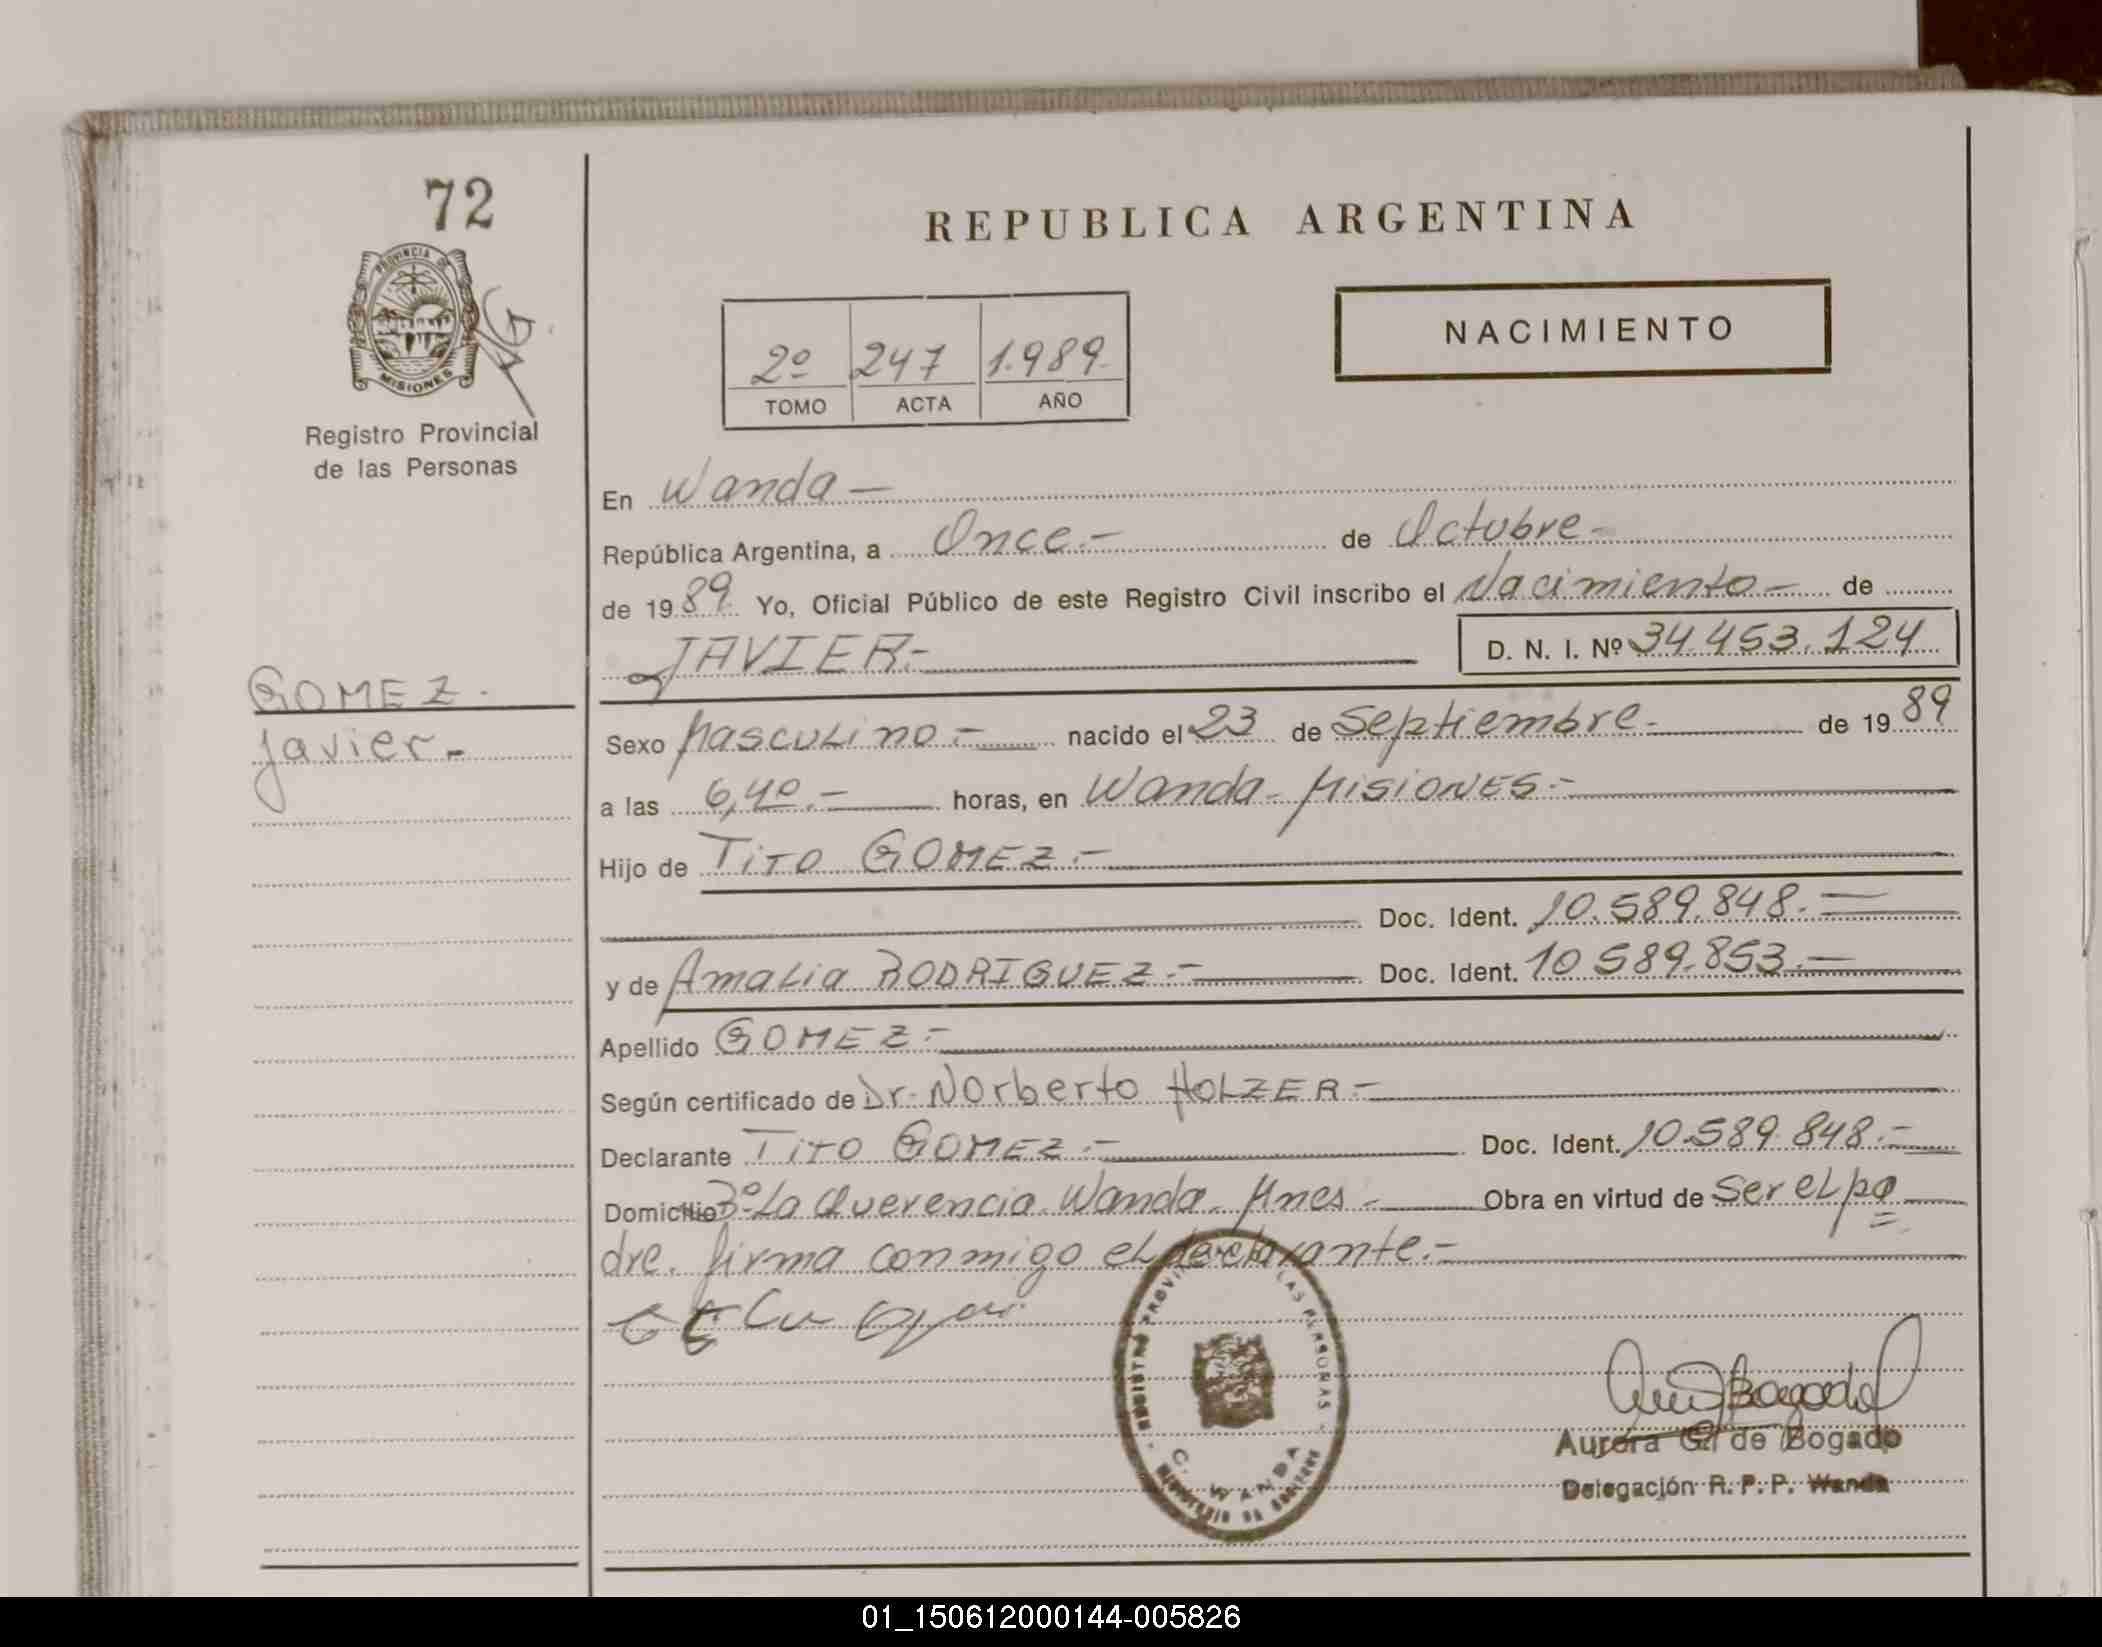 72
PROVINCIA DE
MISIONES
Registro Provincial
de las Personas
REPUBLICA ARGENTINA
2º 247 1.989.
TOMO ACTA AÑO
NACIMIENTO
En Wanda -
República Argentina, a Once.- de Octubre -
de 1989. Yo, Oficial Público de este Registro Civil inscribo el Nacimiento - de
JAVIER.-
D. N. I. Nº 34.453.124
GOMEZ.
Javier.-
Sexo Masculino.- nacido el 23 de Septiembre.- de 1989
a las 6,40.- horas, en Wanda - Misiones.-
Hijo de Tito GOMEZ.-
Doc. Ident. 10.589.848.-
y de Amalia RODRIGUEZ.- Doc. Ident. 10.589.853.-
Apellido GOMEZ.-
Según certificado de Dr. Norberto HOLZER.-
Declarante Tito GOMEZ.- Doc. Ident. 10.589.848.-
Domicilio Bº La Querencia - Wanda - Mnes.- Obra en virtud de ser el pa
dre. firma conmigo el declarante.-
REGISTRO LAS PERSONAS
C. WANDA
Aurora G. de Bogado
Delegación R. P. P. Wanda
01_150612000144-005826